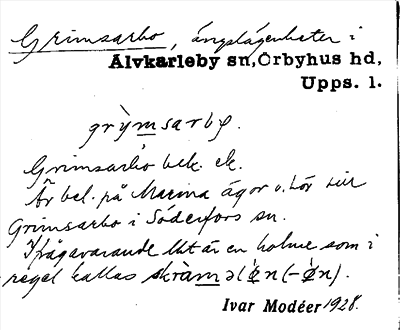 Grimsarbo, ängslägenheter i
Älvkarleby sn, Örbyhus hd,
Upps. l.
grỳmsarbø.
Grimsarbo bek. ek.
Är bel. på Marma ägor o. hör till
Grimsarbo i Söderfors sn.
Ifrågavarande lht är en holme som i
regel kallas skràmə(ǿn (-ǿn).
Ivar Modéer 1928.